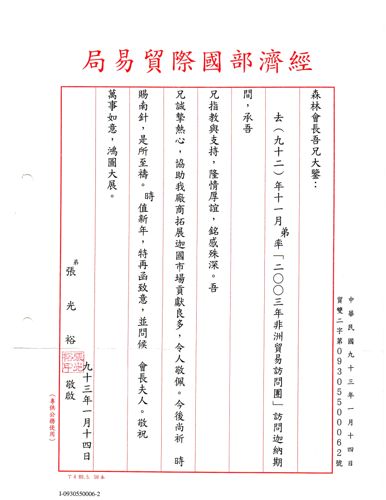 經濟部國際貿易局
森林會長吾兄大鑒：
去（九十二）年十一月弟率「二〇〇三年非洲貿易訪問團」訪問迦納期
間，承吾
兄指教與支持，隆情厚誼，銘感殊深。吾
兄誠摯熱心，協助我廠商拓展迦國市場貢獻良多，令人敬佩。今後尚祈　時
賜南針，是所至禱。時值新年，特再函致意，並問候　會長夫人。敬祝
萬事如意，鴻圖大展。
弟 張光裕 敬啟
九十三年一月十四日
中華民國九十三年一月十四日
貿雙二字第09305500062號
（專供公務使用）
I-0930550006-2